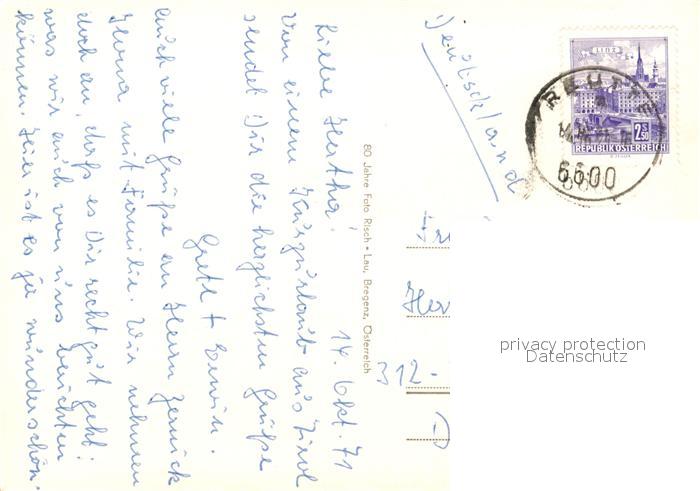 14. Okt. 71
Liebe Hertha!
Von einem Kurzurlaub aus Tirol
sendet Dir die herzlichsten Grüße
Gretl + Erwin.
Auch viele Grüße an Herrn
Ilona mit Familie. Wir nehmen
doch an, daß es Dir recht gut geht!
was wir auch von uns berichten
können. Hier ist es ja wunderschön.
80 Jahre Foto Risch - Lau, Bregenz, Österreich
Deutschland
LINZ
2.50 S
REPUBLIK ÖSTERREICH
REUTTE
6600
Her
312-
D
privacy protection
Datenschutz